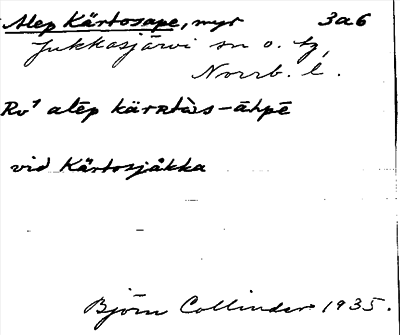 Alep Kårtosape, myr 3a6
Jukkasjärvi sn o. tg,
Norrb. l.
Rv¹ alēp kårʀtàs-āhpē
vid Kårtosjåkka
Björn Collinder 1935.